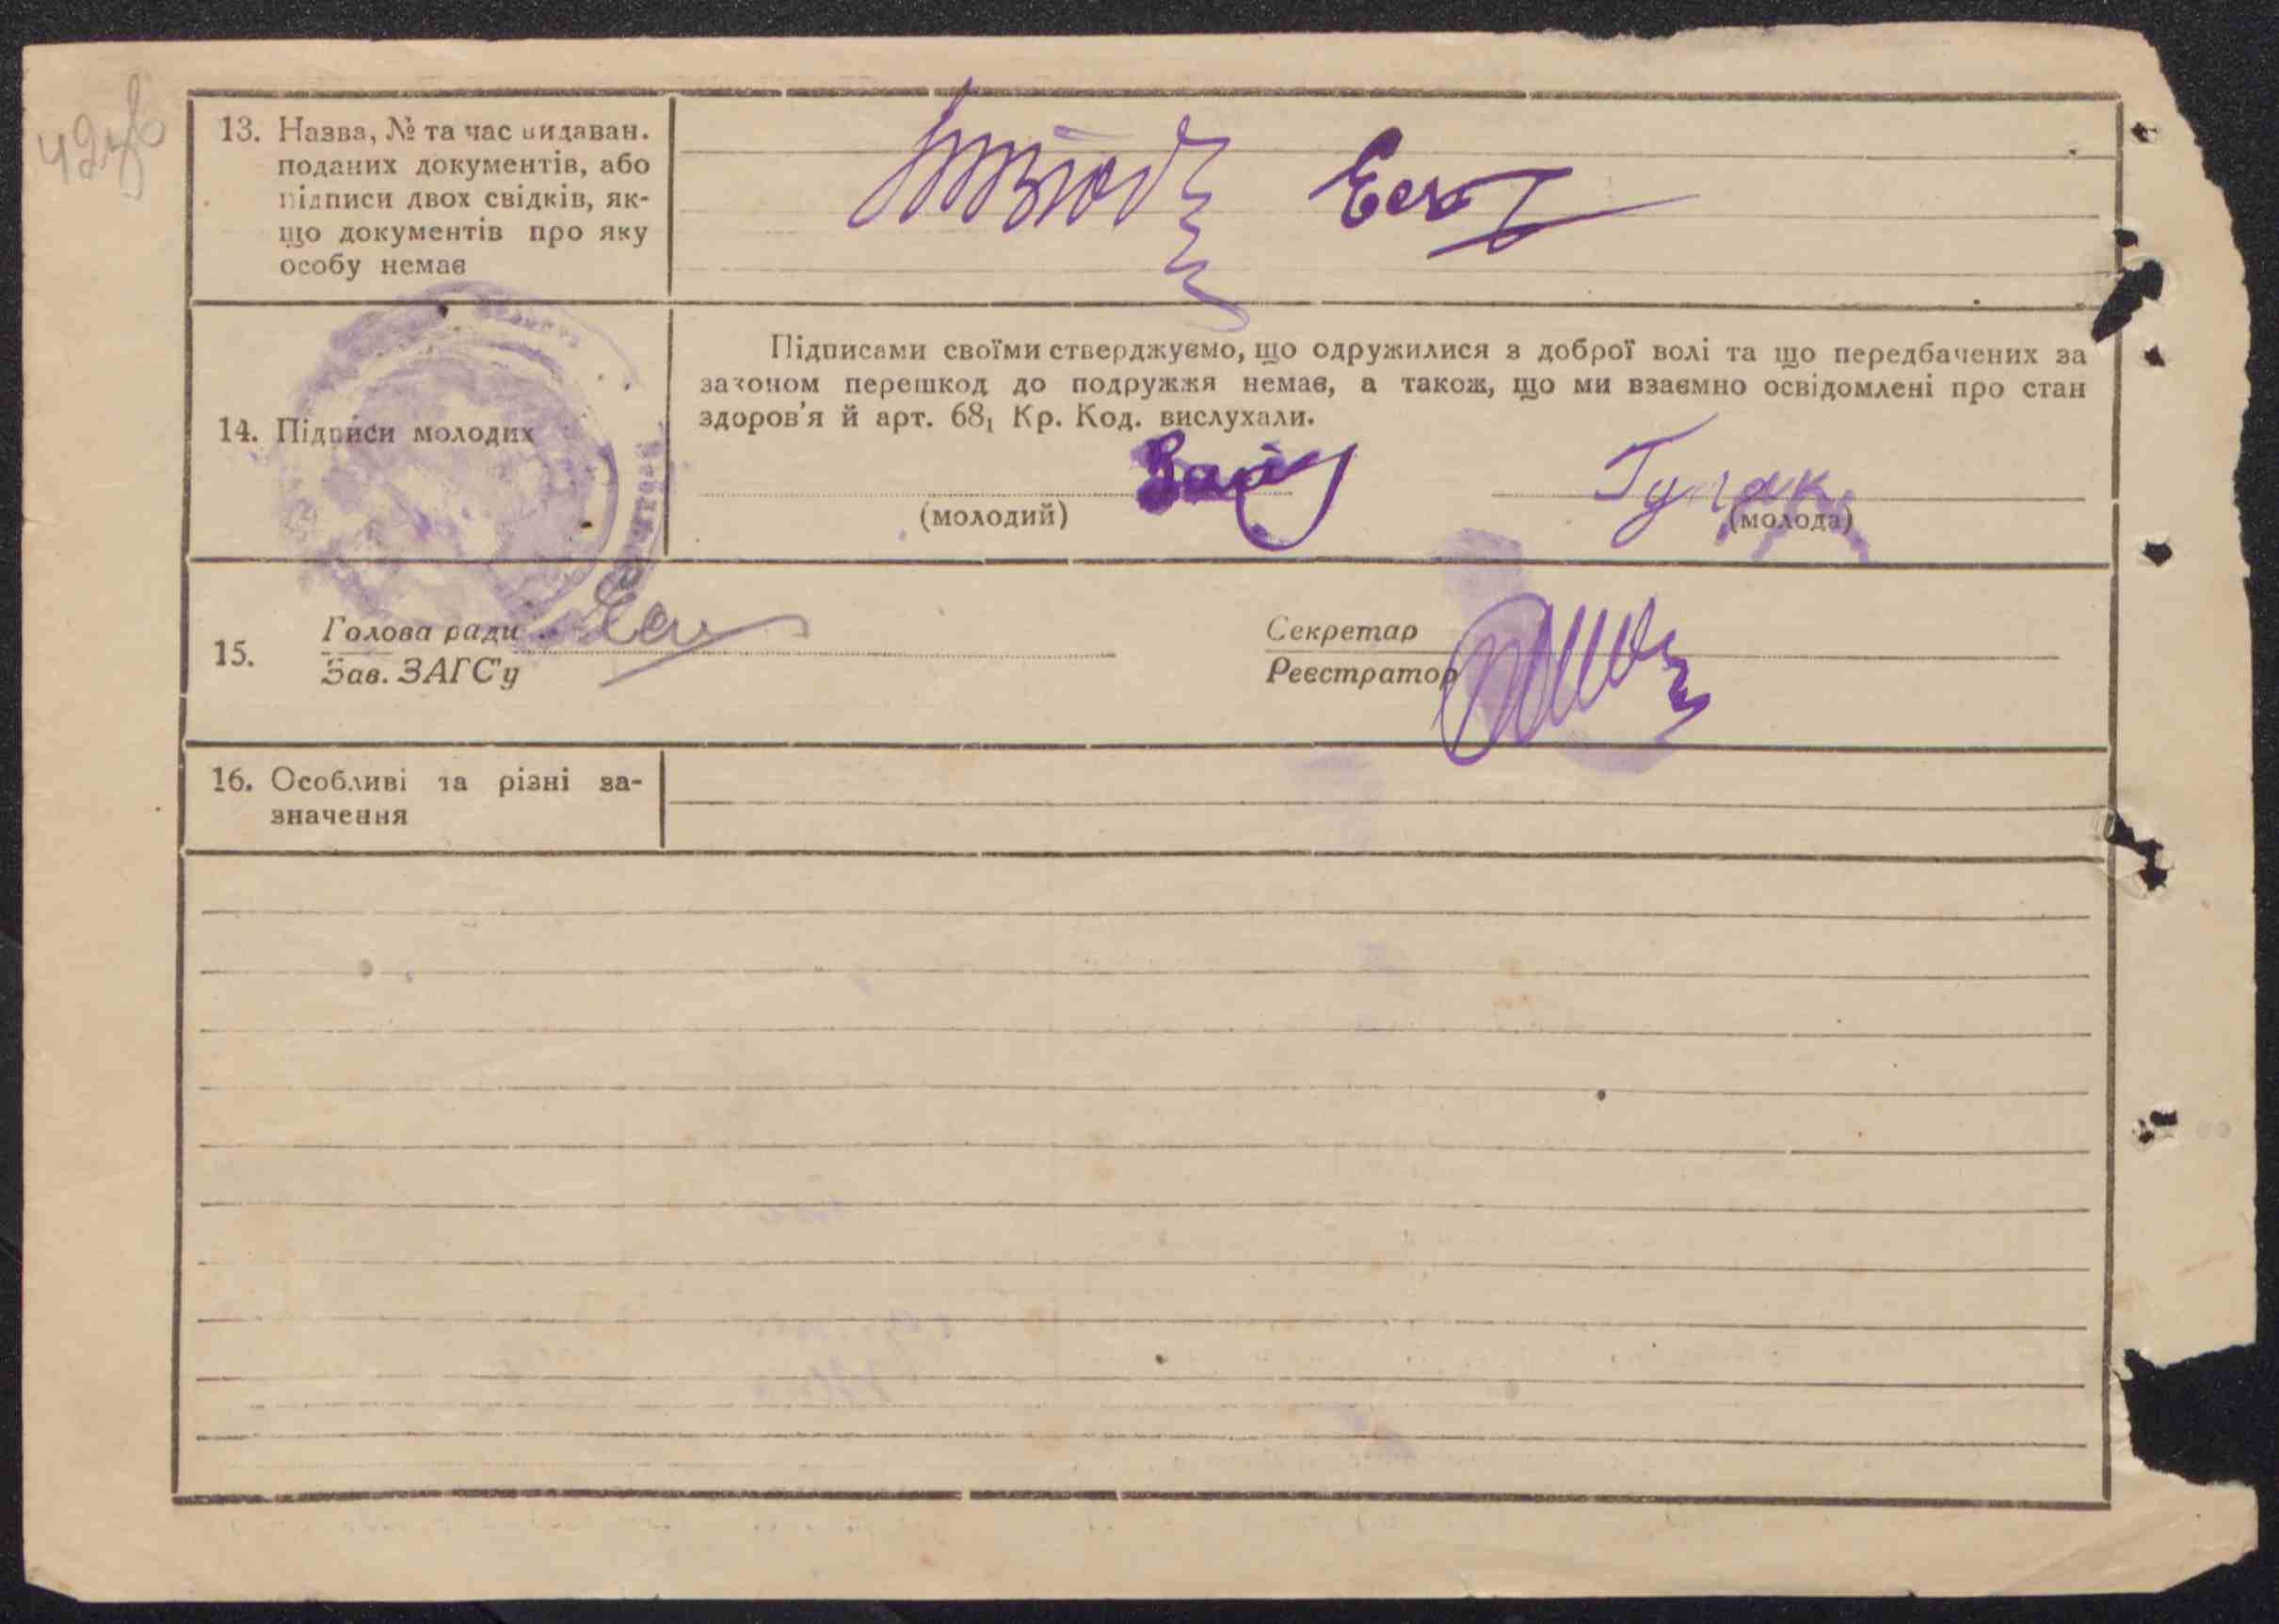 42зв
13. Назва, № та час видаван.
поданих документів, або
підписи двох свідків, як-
що документів про яку
особу немає
14. Підписи молодих
Підписами своїми стверджуємо, що одружилися з доброї волі та що передбачених за
законом перешкод до подружжя немає, а також, що ми взаємно освідомлені про стан
здоров'я й арт. 68₁ Кр. Код. вислухали.
(молодий)
(молода)
15. Голова ради
Зав. ЗАГС'у
Секретар
Реєстратор
16. Особливі та різні за-
значення